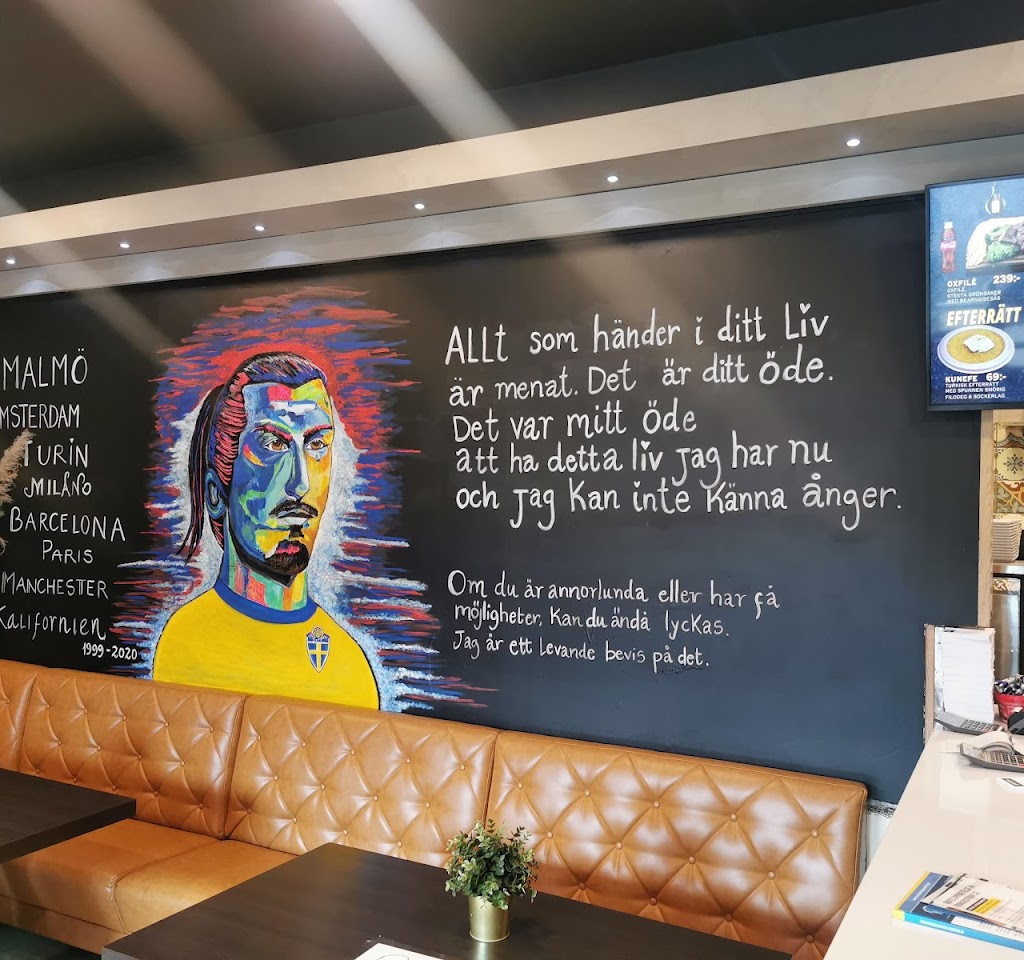 MALMÖ
AMSTERDAM
TURIN
MILANO
BARCELONA
PARIS
MANCHESTER
KALIFORNIEN
1999-2020
ALLt som händer i ditt Liv
är menat. Det är ditt öde.
Det var mitt öde
att ha detta liv jag har nu
och jag kan inte känna ånger.
Om du är annorlunda eller har få
möjligheter, kan du ändå lyckas.
Jag är ett levande bevis på det.
OXFILÉ 239:-
OXFILÉ,
STEKTA GRÖNSAKER
MED BEARNAISESÅS
EFTERRÄTT
KUNEFE 69:-
TURKISK EFTERRÄTT
MED SPUNNEN SMÖRIG
FILODEG & SOCKERLAG